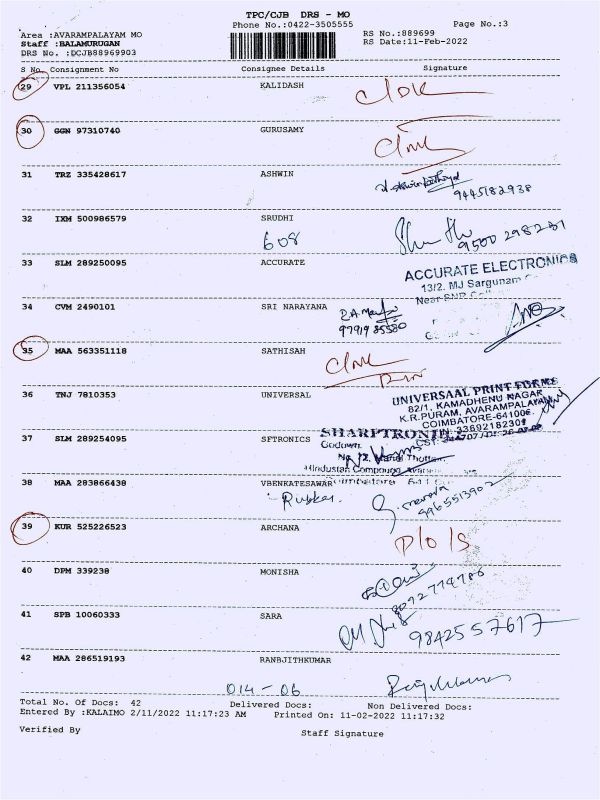 TPC/CJB DRS - MO
Phone No.:0422-3505555 Page No.:3
Area :AVARAMPALAYAM MO RS No.:889699
Staff :BALAMURUGAN RS Date:11-Feb-2022
DRS No. :DCJB88969903
S No. Consignment No Consignee Details Signature
29 VPL 211356054 KALIDASH
30 GGN 97310740 GURUSAMY
31 TRZ 335428617 ASHWIN
9445182938
32 IXM 500986579 SRUDHI
608
33 SLM 289250095 ACCURATE
ACCURATE ELECTRONICS
13/2. MJ Sargunam
34 CVM 2490101 SRI NARAYANA
35 MAA 563351118 SATHISAH
36 TNJ 7810353 UNIVERSAL
UNIVERSAAL PRINT FORMS
82/1, KAMADHENU NAGAR
K.R.PURAM, AVARAMPALAYAM
COIMBATORE-641006.
37 SLM 289254095 SFTRONICS
SHARPTRONIC 33692182301
Godown
Hindustan Compound
38 MAA 283866438 VBENKATESAWAR
Rubber. 9965513902
39 KUR 525226523 ARCHANA
40 DPM 339238 MONISHA
8072774786
41 SPB 10060333 SARA
9842557617
42 MAA 286519193 RANBJITHKUMAR
014-06
Total No. Of Docs: 42 Delivered Docs: Non Delivered Docs:
Entered By :KALAIMO 2/11/2022 11:17:23 AM Printed On: 11-02-2022 11:17:32
Verified By Staff Signature